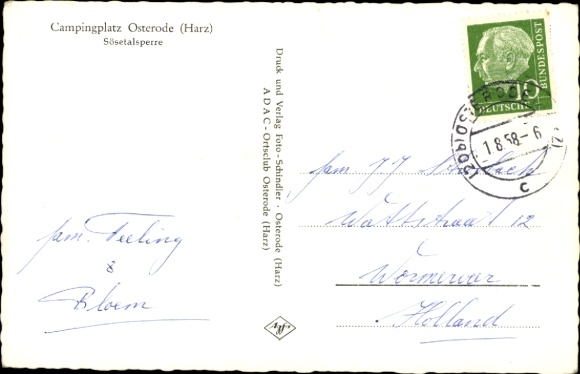 Campingplatz Osterode (Harz)
Sösetalsperre
fam. Feeling
&
Bloem
Druck und Verlag Foto-Schindler · Osterode (Harz)
ADAC-Ortsclub Osterode (Harz)
10
DEUTSCHE
BUNDESPOST
1.8.58-6
c
fam. J.J.
Wattstraat 12
Wormerveer
Holland